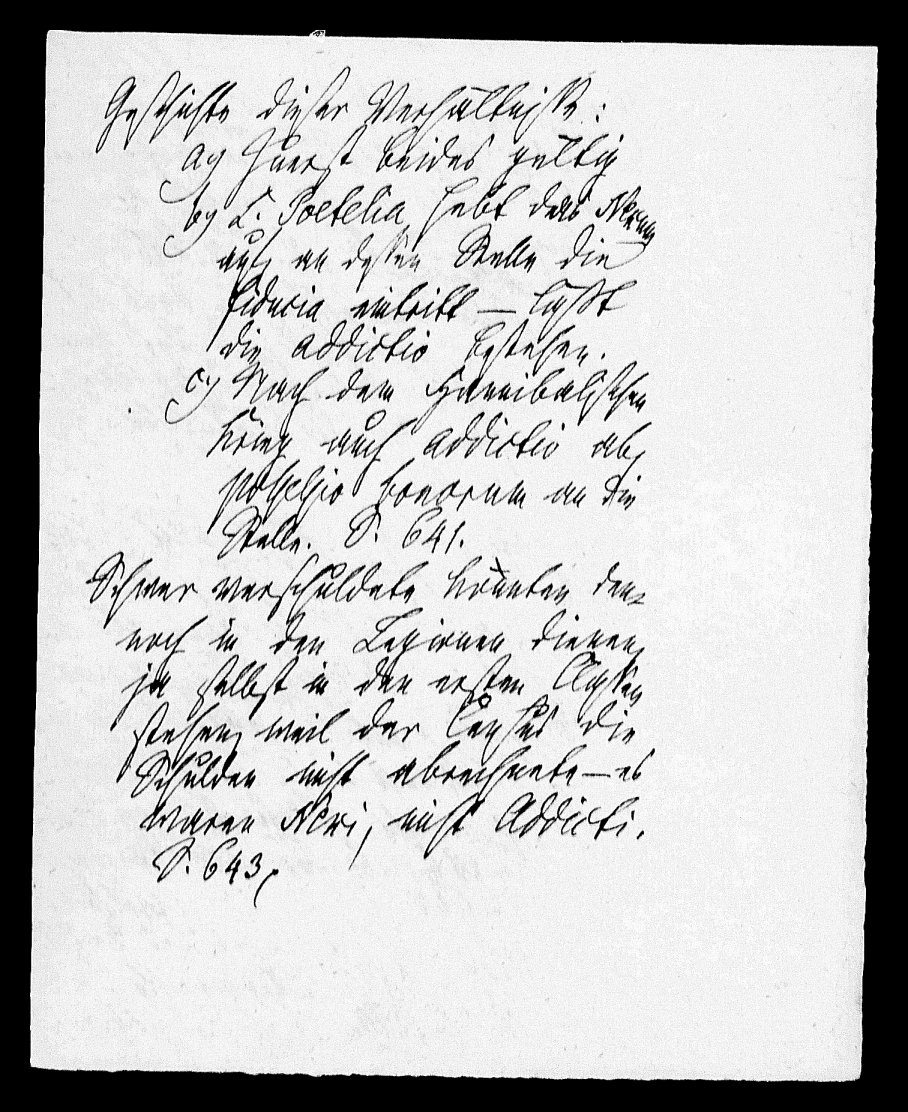 Geschichte dieser Verhältnisse:
a) Zuerst beides gültig
b) L. Poetelia hebt das Nexum
auf, an dessen Stelle die
fiducia eintritt – läßt
die addictio bestehen.
c) Nach dem Hannibalischen
Krieg auch addictio ab,
possessio bonorum an die
Stelle. S. 641.
Schwer verschuldete könnten den-
noch in den Legionen dienen,
ja selbst in den ersten Classen
stehen, weil der Census die
Schulden nicht abrechnete – es
waren Nexi, nicht Addicti.
S. 643,